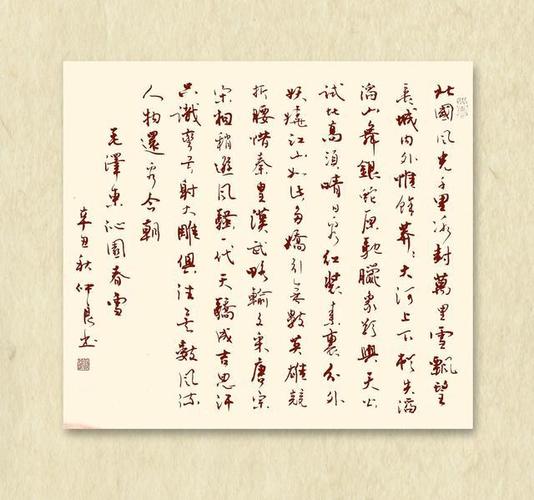 北國风光千里冰封萬里雪飄望
長城内外惟餘莽々大河上下頓失滔
滔山舞銀蛇原馳臘象欲與天公
試比高須晴日看紅裝素裹分外
妖嬈江山如此多嬌引無數英雄競
折腰惜秦皇漢武略輸文采唐宗
宋祖稍遜风騷一代天驕成吉思汗
只識彎弓射大雕俱往矣數风流
人物還看今朝
毛澤東沁園春雪
辛丑秋仲良书